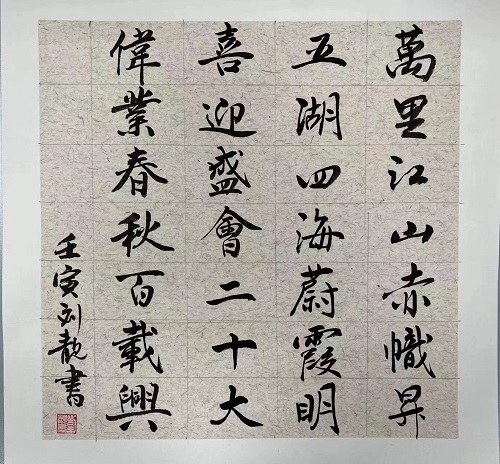 萬里江山赤幟昇
五湖四海蔚霞明
喜迎盛會二十大
偉業春秋百載興
壬寅刘靓書